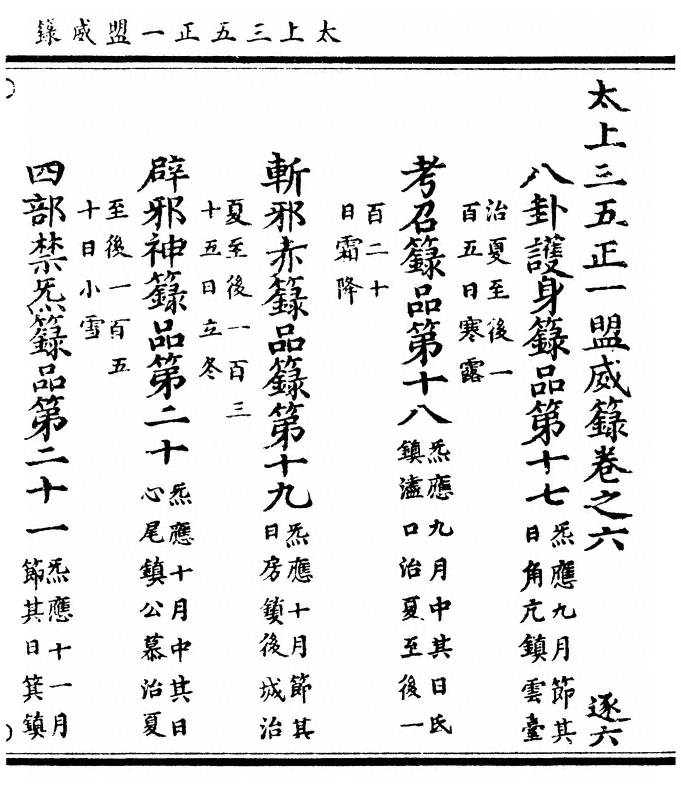 太上三五正一盟威籙
太上三五正一盟威籙卷之六
逐六
八卦護身籙品第十七
炁應九月節其
日角亢鎮雲臺
治夏至後一
百五日寒露
考召籙品第十八
炁應九月中其日氐
鎮濜口治夏至後一
百二十
日霜降
斬邪赤籙品籙第十九
炁應十月節其
日房鎮後城治
夏至後一百三
十五日立冬
辟邪神籙品第二十
炁應十月中其日
心尾鎮公慕治夏
至後一百五
十日小雪
四部禁炁籙品第二十一
炁應十一月
節其日箕鎮